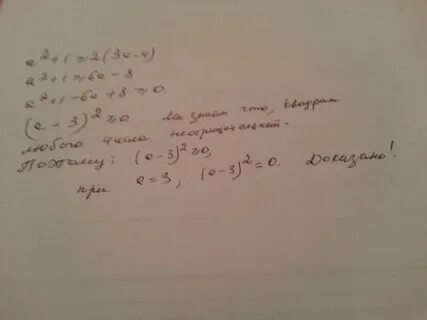 a²+1≥2(3a-4)
a²+1≥6a-8
a²+1-6a+8≥0
(a-3)²≥0 Мы знаем что, квадрат
любого числа неотрицательный.
Поэтому: (a-3)²≥0,
при a=3, (a-3)²=0. Доказано!